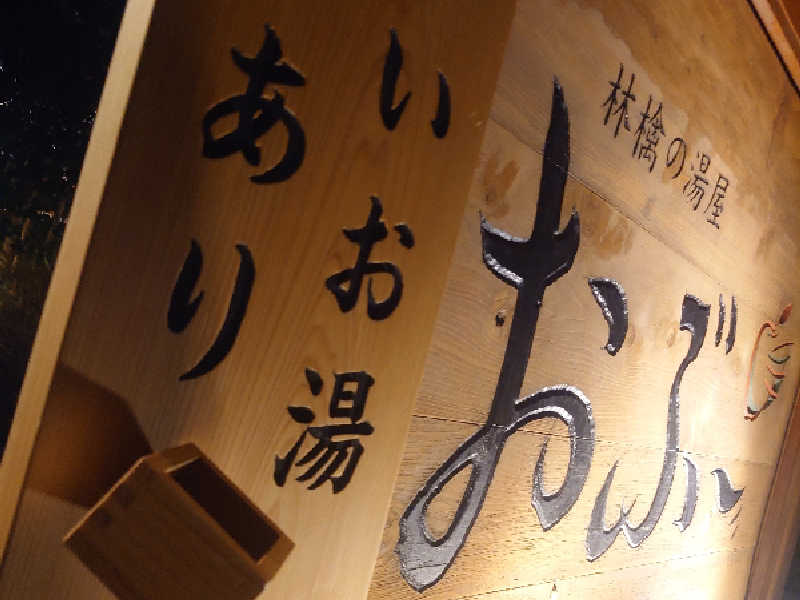 林檎の湯屋
おぶ~
いお湯
あり